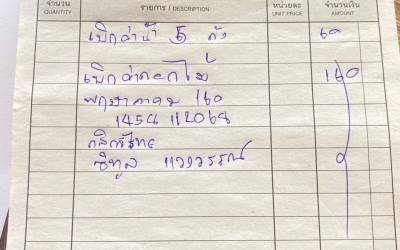 จำนวน รายการ / DESCRIPTION หน่วยละ จำนวนเงิน
QUANTITY UNIT PRICE AMOUNT
เบิกค่าน้ำ 5 ถัง 60
เบิกค่าดอกไม้ 160
พฤษภาคม 160
กสิกรไทย